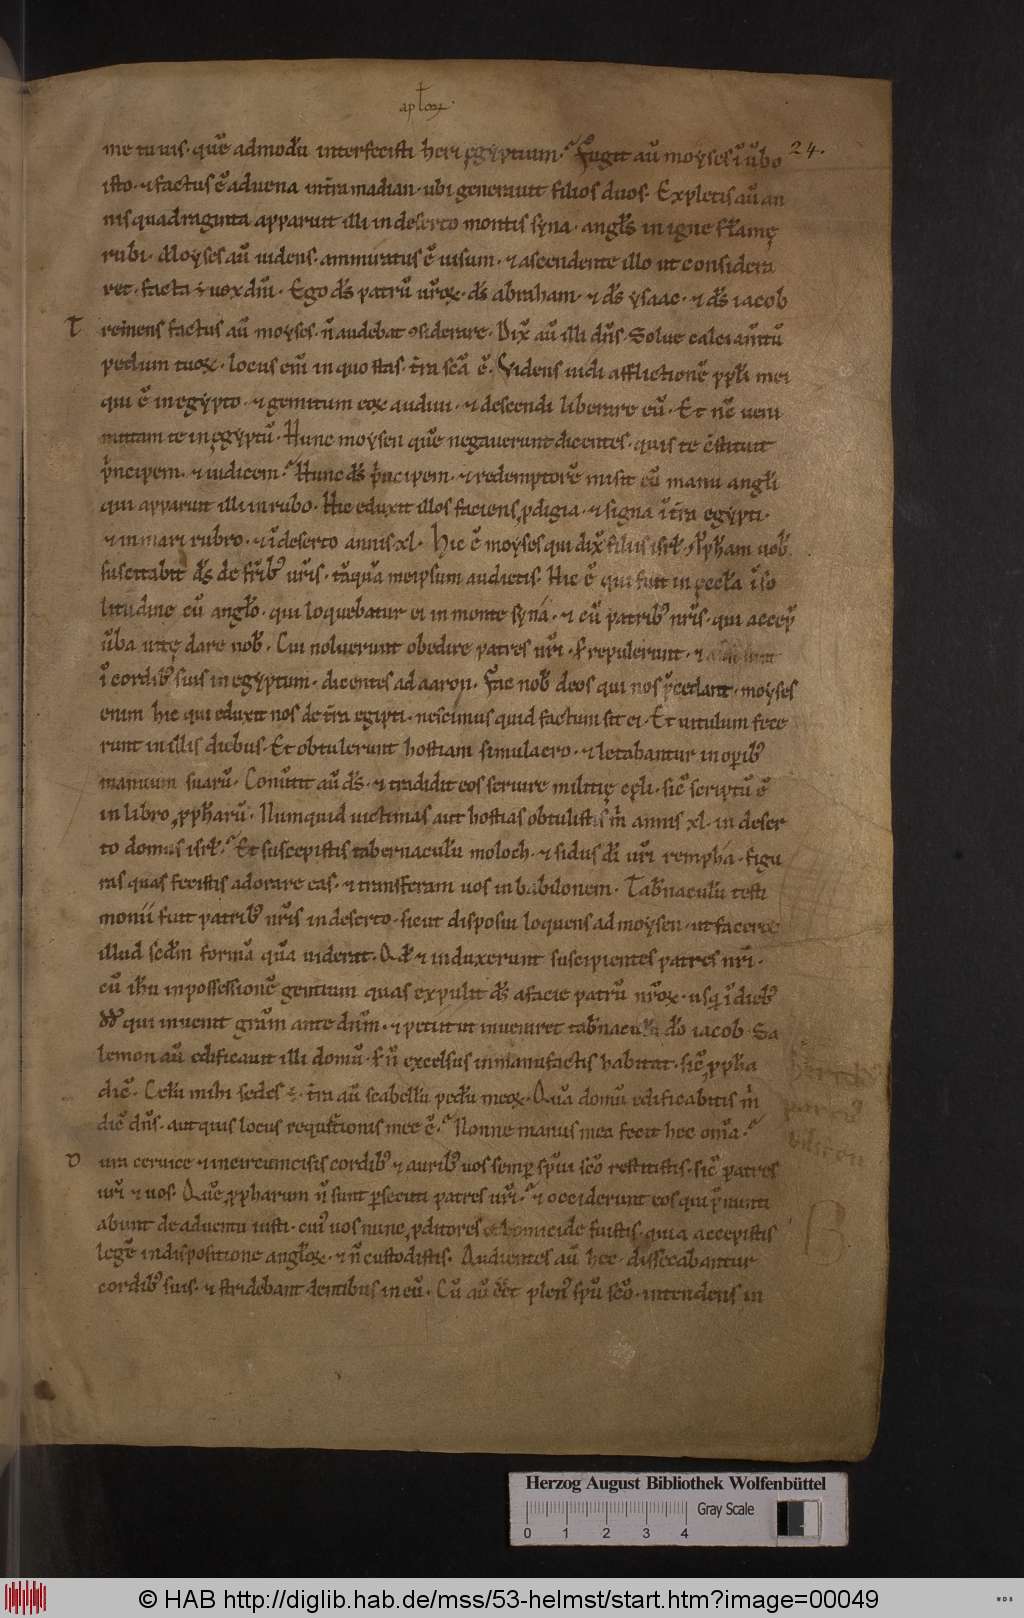 apl'oꝝ.
24.
me tu uis. quē admodū interfecisti heri egyptium. Fugit aū moyses ī ūbo
isto. ⁊ factus ē aduena in tr̄a madian. ubi generauit filios duos. Expletis aū an
nis quadraginta apparuit illi in deserto montis syna. angl̄s in igne flamę
rubi. Moyses aū uidens. ammiratus ē uisum. ⁊ ascendente illo ut considera
ret. facta ÷ uox dn̄i. Ego ds̄ patrū ur̄oꝝ. ds̄ abraham. ⁊ ds̄ ysaac. ⁊ ds̄ iacob
T remens factus aū moyses. n̄ audebat ɔsiderare. Dix̄ aū illi dn̄s. Solue calciam̄tū
pedum tuoꝝ. locus eni in quo stas. tr̄a scā ē. Videns uidi afflictionē ppl̄i mei
qui ē in egypto. ⁊ gemitum eoꝝ audiui. ⁊ descendi liberare eū. Et nc̄ ueni
mittam te in egyptū. Hunc moysen quē negauerunt dicentes. quis te c̄stituit
p̄ncipem. ⁊ iudicem. Hunc ds̄ p̄ncipem. ⁊ redemptorē misit cū manu angl̄i
qui apparuit illi in rubo. Hic eduxit illos faciens ꝓdigia. ⁊ signa ī tr̄a egypti.
⁊ in mari rubro. ⁊ ī deserto annis xl. Hic ē moyses qui dix̄ filiis isrl̄. Ꝓph̄am uob̄
suscitabit ds̄ de fr̄ib; ur̄is. tāquā meipsum audietis. Hic ē qui fuit in ęccl̄a ī so
litudine cū angl̄o. qui loquebatur ei in monte syna. ⁊ cū patrib; nr̄is. qui accep̄
ūba uitę dare nob̄. Cui noluerunt obedire patres nr̄i. s; repulerunt. ⁊
ī cordib; suis in egyptum. dicentes ad aaron. Fac nob̄ deos qui nos p̄cedant. moyses
enim hic qui eduxit nos de tr̄a egipti. nescimus quid factum sit ei. Et uitulum fece
runt in illis diebus. Et obtulerunt hostiam simulacro. ⁊ letabantur in oꝑib;
manuum suarū. Conūtit aū ds̄. ⁊ tradidit eos seruire militię cęli. sic̄ scriptū ē
in libro ꝓph̄arū. Numquid uictimas aut hostias obtulistis m̄ annis xl. in deser
to domus isrl̄. Et suscepistis tabernaculū moloch. ⁊ sidus dī ur̄i rempha. figu
ras quas fecistis adorare eas. ⁊ transferam uos in babilonem. Tab̄naculū testi
monii fuit patrib; nr̄is in deserto. sicut disposuit loquens ad moysen. ut faceret
illud scd̄m formā quā uiderat. Qd̄ ⁊ induxerunt suscipientes patres nr̄i.
cū ih̄u in possessionē gentium quas expulit ds̄ a facie patrū nr̄oꝝ. usq; ī dieb;
dd̄ qui inuenit grām ante dn̄m. ⁊ petiit ut inueniret tab̄naculū dō iacob. Sa
lemon aū edificauit illi domū. s; n̄ excelsus in manufactis habitat. sic̄ ꝓph̄a
dic̄. Celū mihi sedes ÷. tr̄a aū scabellū pedū meoꝝ. Quā domū edificabitis m̄
dic̄ dn̄s. aut quis locus requietionis mee ē. Nonne manus mea fecit hec om̄a.
D ura ceruice ⁊ incircumcisis cordib; ⁊ aurib; uos semꝑ spūi scō restitistis. sic̄ patres
ur̄i ⁊ uos. Quē ꝓpharum n̄ sunt ꝑsecuti patres ur̄i. ⁊ occiderunt eos qui p̄nunti
abant de aduentu iusti. cui; uos nunc ꝓditores ⁊ homicide fuistis. quia accepistis
legē in dispositione angl̄oꝝ. ⁊ n̄ custodistis. Audientes aū hec. dissecabantur
cordib; suis. ⁊ stridebant dentibus in eū. Cū aū ēēt plen; spū scō. intendens in
Herzog August Bibliothek Wolfenbüttel
Gray Scale
0 1 2 3 4
© HAB http://diglib.hab.de/mss/53-helmst/start.htm?image=00049